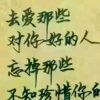 去爱那些
对你好的人
忘掉那些
不知珍惜你的